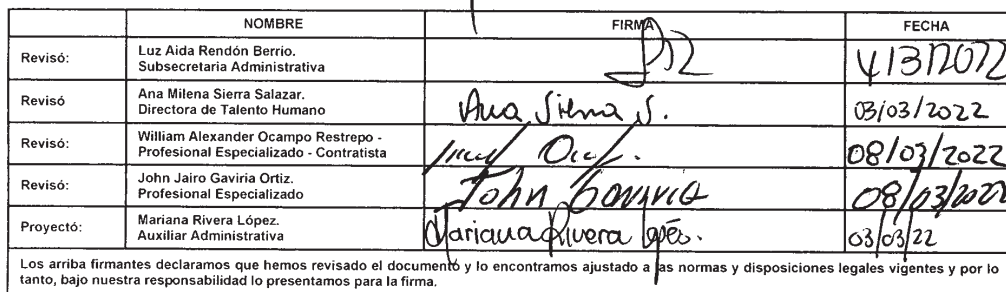 NOMBRE FIRMA FECHA
Revisó: Luz Aida Rendón Berrio.
Subsecretaria Administrativa 4/3/2022
Revisó Ana Milena Sierra Salazar.
Directora de Talento Humano Ana Sierra S. 03/03/2022
Revisó: William Alexander Ocampo Restrepo -
Profesional Especializado - Contratista 08/03/2022
Revisó: John Jairo Gaviria Ortiz.
Profesional Especializado John Gaviria 08/03/2022
Proyectó: Mariana Rivera López.
Auxiliar Administrativa Mariana Rivera López. 03/03/22
Los arriba firmantes declaramos que hemos revisado el documento y lo encontramos ajustado a las normas y disposiciones legales vigentes y por lo
tanto, bajo nuestra responsabilidad lo presentamos para la firma.